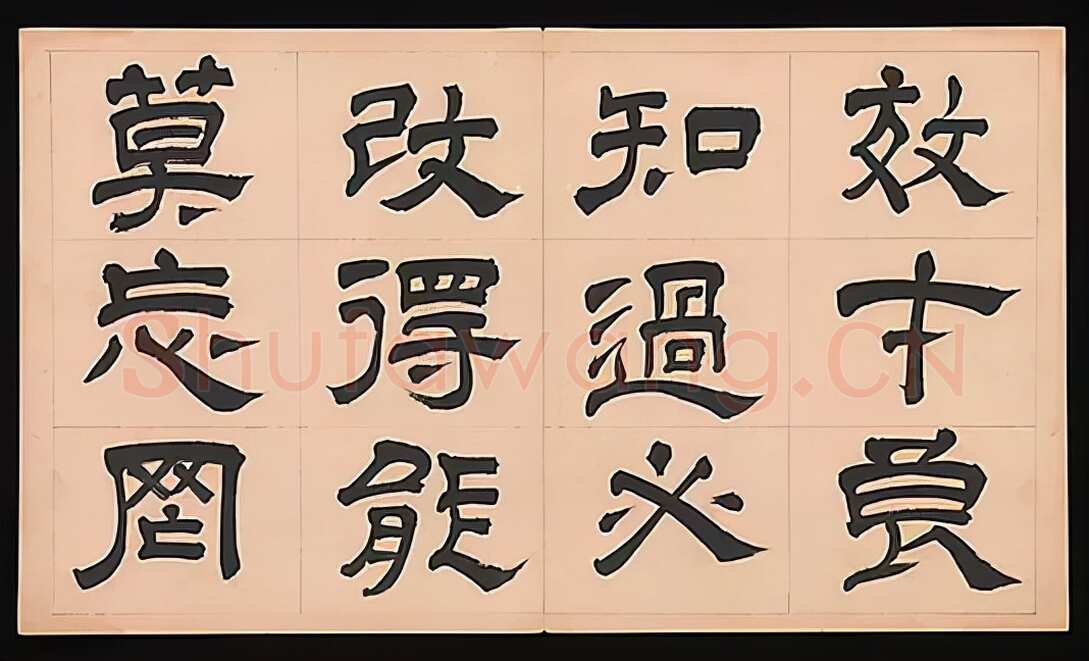 效才良
知過必
改得能
莫忘罔
Shufawang.CN